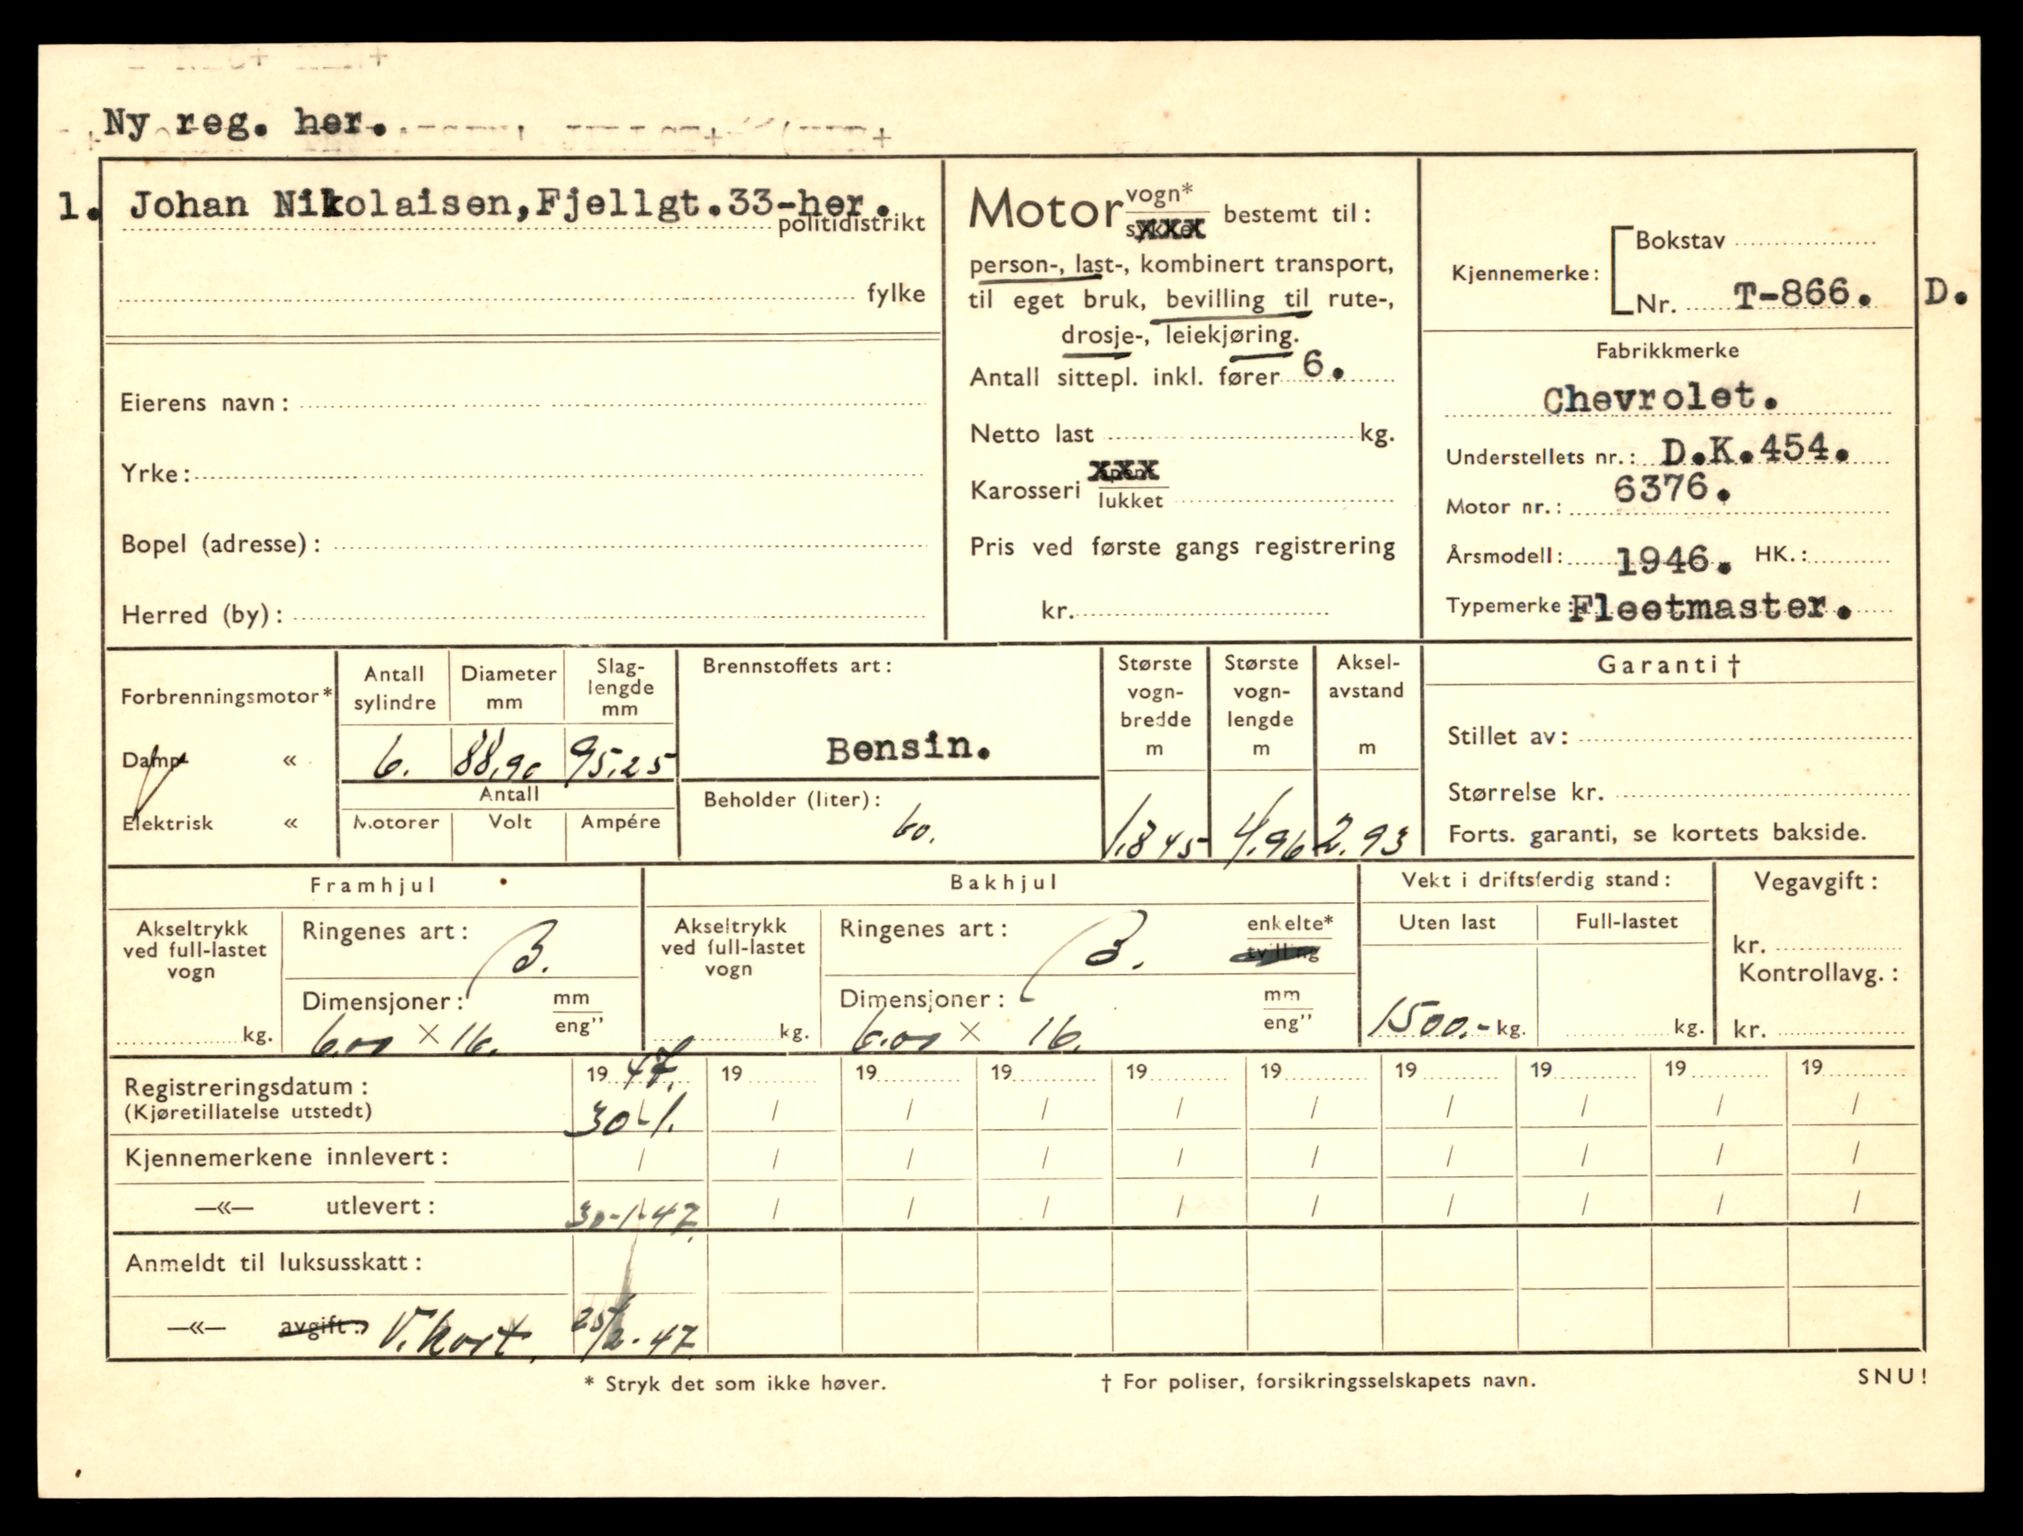 Ny reg. her.
1. Johan Nikolaisen, Fjellgt. 33-her.
politidistrikt
fylke
Eierens navn:
Yrke:
Bopel (adresse):
Herred (by):
Motor vogn* bestemt til:
person-, last-, kombinert transport,
til eget bruk, bevilling til rute-,
drosje-, leiekjøring.
Antall sittepl. inkl. fører 6.
Netto last kg.
Karosseri xxx
lukket
Pris ved første gangs registrering
kr.
Bokstav
Kjennemerke:
Nr. T-866. D.
Fabrikkmerke
Chevrolet.
Understellets nr.: D.K.454.
Motor nr.: 6376.
Årsmodell: 1946. HK.:
Typemerke: Fleetmaster.
Forbrenningsmotor*
Damp «
Elektrisk «
Antall sylindre
6.
Diameter mm
88,90
Slaglengde mm
95,25
Antall
Motorer Volt Ampére
Brennstoffets art:
Bensin.
Beholder (liter):
60.
Største vognbredde m
1.845
Største vognlengde m
4,96
Akselavstand m
2.93
Garanti†
Stillet av:
Størrelse kr.
Forts. garanti, se kortets bakside.
Framhjul
Akseltrykk ved full-lastet vogn
kg.
Ringenes art: B.
Dimensjoner: mm
eng"
6.00 × 16.
Bakhjul
Akseltrykk ved full-lastet vogn
kg.
Ringenes art: B. enkelte*
tvilling
Dimensjoner: mm
eng"
6.00 × 16.
Vekt i driftsferdig stand:
Uten last Full-lastet
1500.- kg. kg.
Vegavgift:
kr.
Kontrollavg.:
kr.
Registreringsdatum: 19 47. 19 19 19 19 19 19 19 19 19
(Kjøretillatelse utstedt) 30-1. / / / / / / / / /
Kjennemerkene innlevert: / / / / / / / / / /
—«— utlevert: 30-1-47. / / / / / / / / /
Anmeldt til luksusskatt:
—«— avgift: V.kort. 25/2-47
* Stryk det som ikke høver.
† For poliser, forsikringsselskapets navn.
SNU!